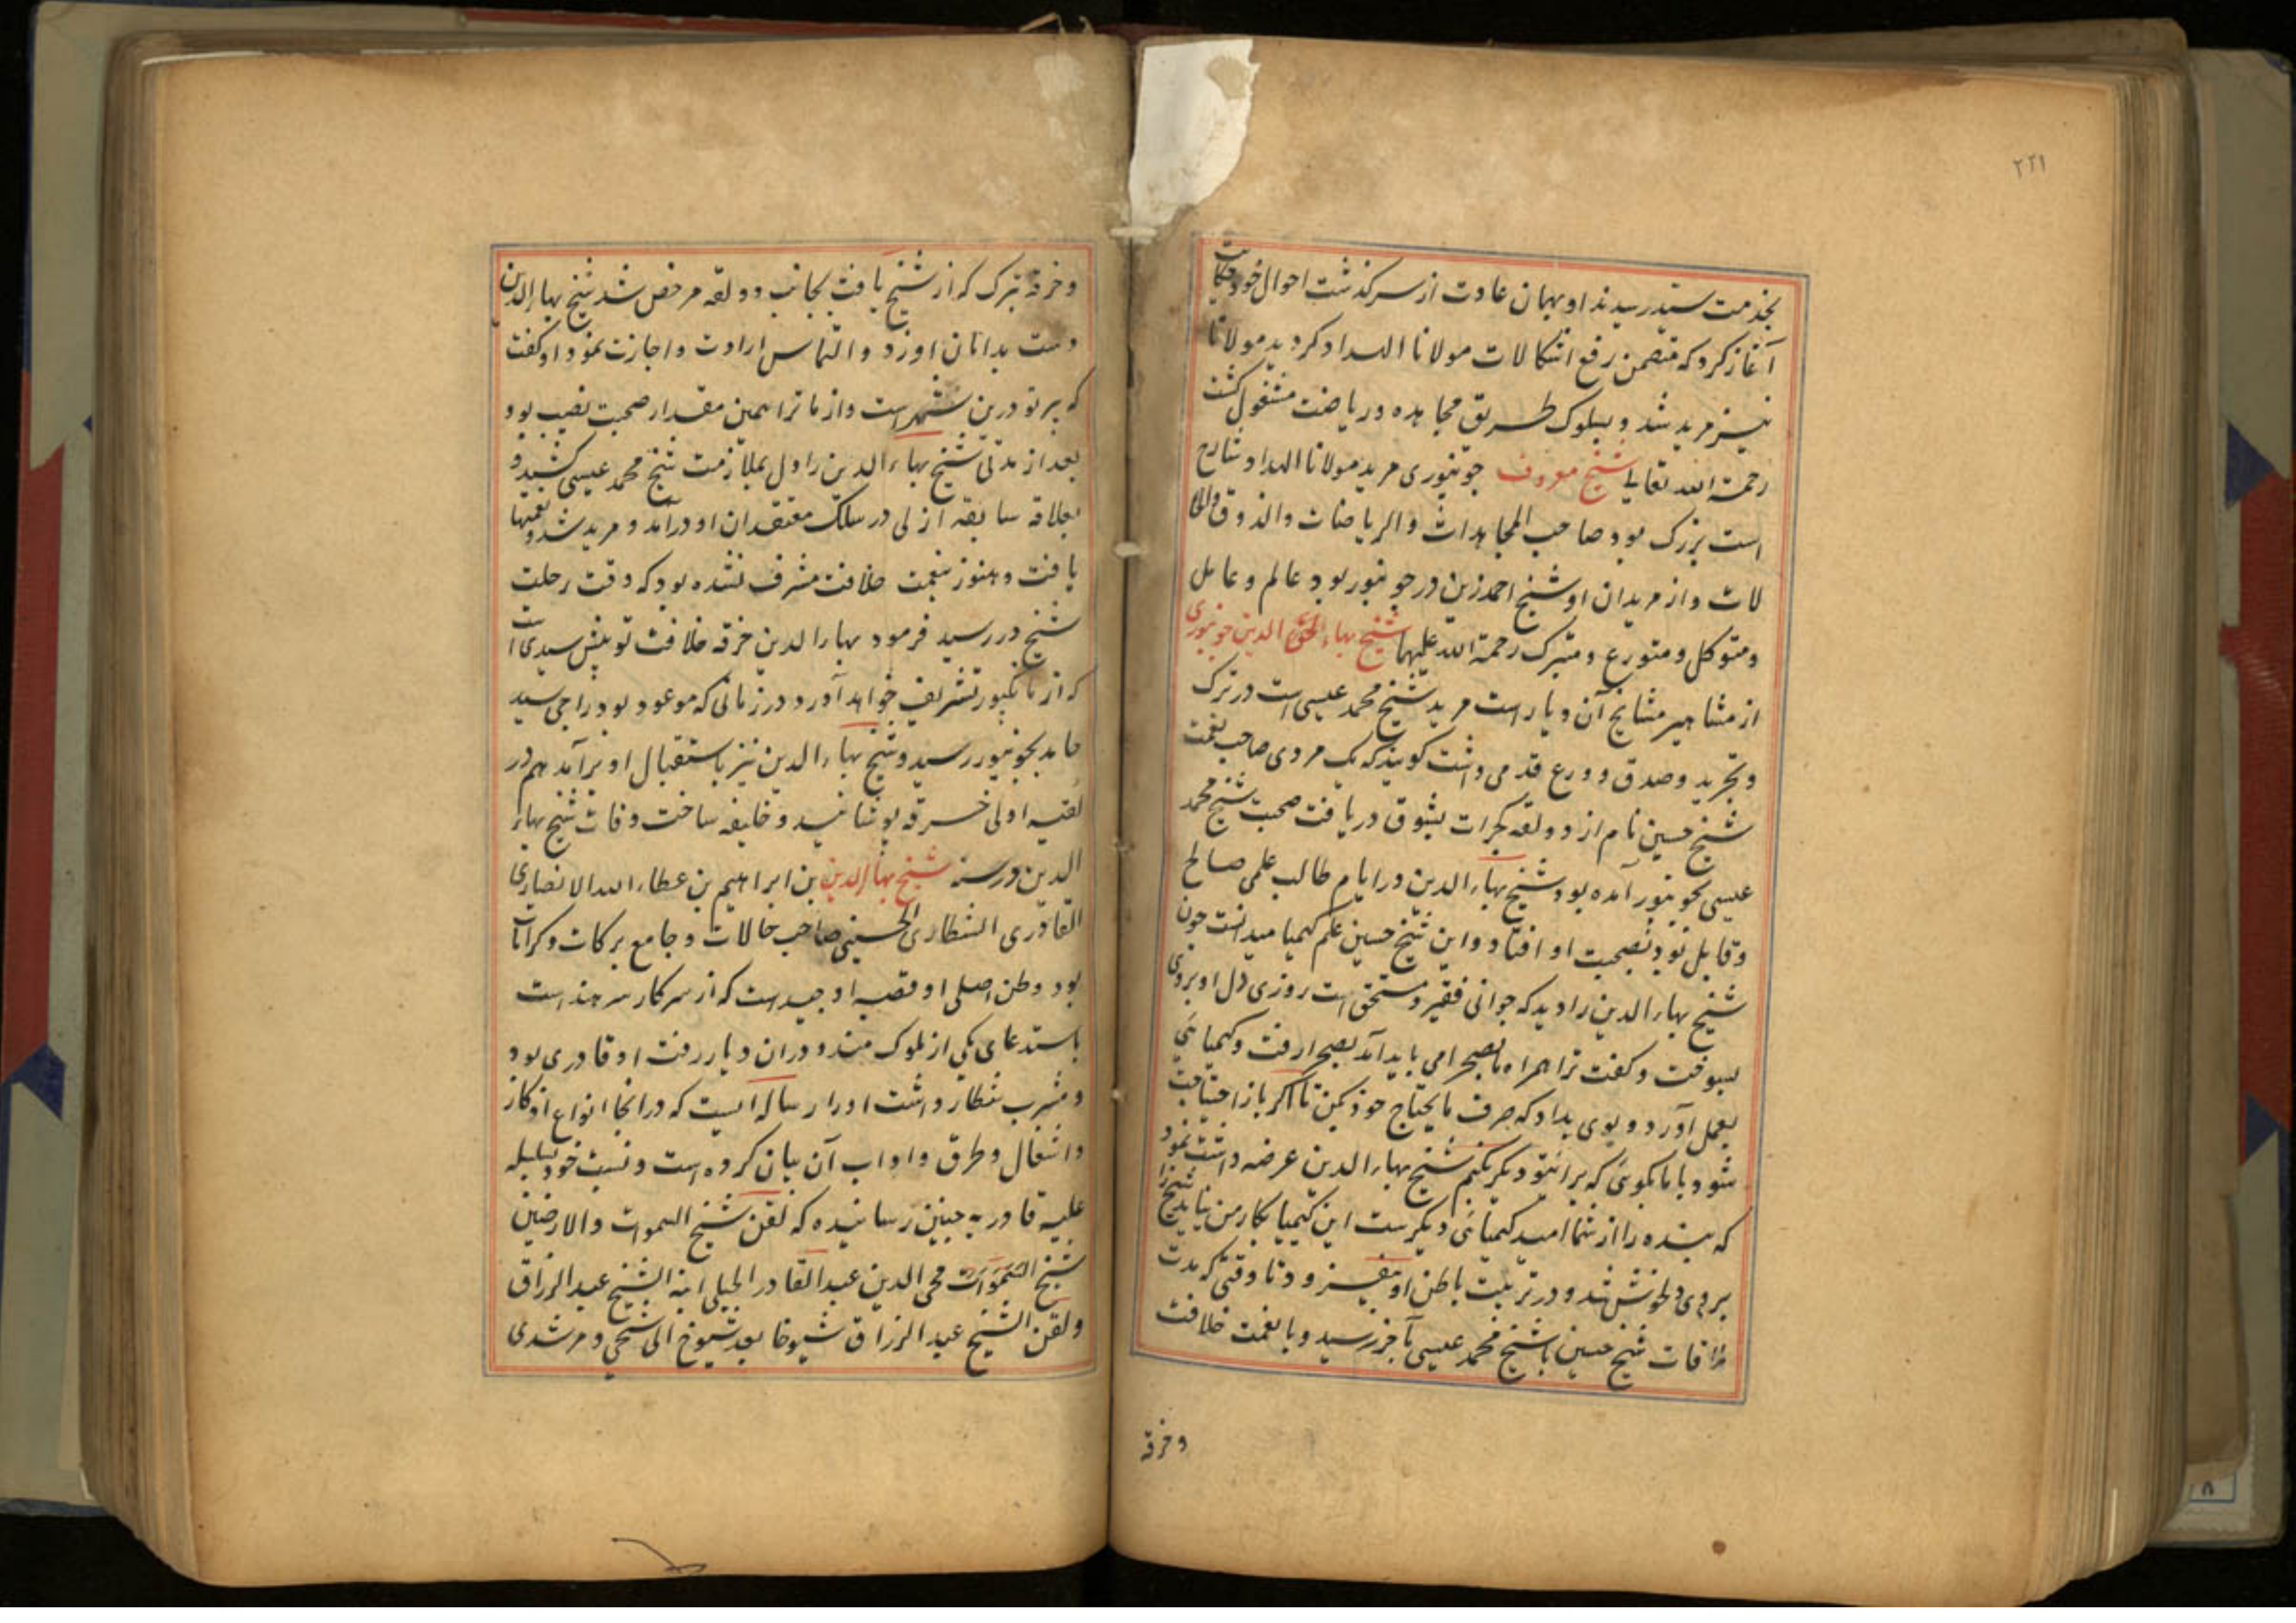 ۲۲۱
بخدمت سید رسیدند او بهمان عادت از سرکذشت احوال خود حکایت
آغاز کرد که متضمن رفع اشکالات مولانا الهداد کردید مولانا
نیز مرید شد و بسلوک طریق مجاهده و ریاضت مشغول کشت
رحمة الله تعالی شیخ معروف جونپوری مرید مولانا الهداد شارح
است بزرک بود صاحب المجاهدات والریاضات والذوق والحا
لات و از مریدان او شیخ احمد زین در جونپور بود عالم و عامل
و متوکل و متورع و متبرک رحمة الله علیهما شیخ بهاء الحق الدین جونپوری
از مشاهیر مشایخ آن دیار است مرید شیخ محمد عیسی است در ترک
و تجرید و صدق و ورع قدمی داشت کویند که یک مردی صاحب نعمت
شیخ حسین نام از دولقه کجرات بشوق دریافت صحبت شیخ محمد
عیسی بجونپور آمده بود شیخ بهاء الدین در ایام طالب علمی صالح
و قابل بود بصحبت او افتاد و این شیخ حسین علم کیمیا میدانست چون
شیخ بهاء الدین را دید که جوانی فقیر و مستحق است روزی دل او بروی
بسوخت و کفت ترا همراه ما بصحرا می باید آمد بصحرا رفت و کیمیائی
بعمل آورد و بوی بداد که صرف مایحتاج خود بکن تا اکر باز احتیاجت
شود با ما بکوئی که برائتو دیکر بکنم شیخ بهاء الدین عرضه داشت نمود
که بنده را از شما امید کیمیائی دیکرست این کیمیا بکار من نیاید شیخ را
بروی دلخوش شد و در تربیت باطن او میفزود تا وقتی که مدت
ملاقات شیخ حسین با شیخ محمد عیسی بآخر رسید و با نعمت خلافت
وخرقه
و خرقه تبرک که از شیخ یافت بجانب دولقه مرخص شد شیخ بهاء الدین
دست بدامان او زد و التماس ارادت و اجازت نمود او کفت
که پیر تو درین شهر است و از ما ترا همین مقدار صحبت نصیب بود
بعد از مدتی شیخ بهاء الدین را دل بملازمت شیخ محمد عیسی کشید و
بعلاقه سابقه ازلی در سلک معتقدان او درآمد و مرید شد و نعمتها
یافت و هنوز بنعمت خلافت مشرف نشده بود که وقت رحلت
شیخ در رسید فرمود بهاء الدین خرقه خلافت تو پیش سیدی است
که از مانکپور تشریف خواهد آورد در زمانی که موعود بود راجی سید
حامد بجونپور رسید و شیخ بهاء الدین نیز باستقبال او برآمد هم در
لقیه اولی خرقه پوشانید و خلیفه ساخت وفات شیخ بهاء
الدین در سنه شیخ بهاء الدین بن ابراهیم بن عطاء الله الانصاری
القادری الشطاری الحسینی صاحب حالات و جامع برکات و کرامات
بود وطن اصلی او قصبه او جیند است که از سرکار سرهند است
باستدعای یکی از ملوک مندو دران دیار رفت او قادری بود
و مشرب شطار داشت او را رساله ایست که درانجا انواع اذکار
و اشغال و طرق و اداب آن بیان کرده است و نسبت خود بسلسله
علیه قادریه چنین رسانیده که لقن شیخ السموات والارضین
شیخ السموات محی الدین عبدالقادر الجیلی ابنه الشیخ عبدالرزاق
ولقن الشیخ عبدالرزاق شیوخا بعد شیوخ الی شیخی و مرشدی